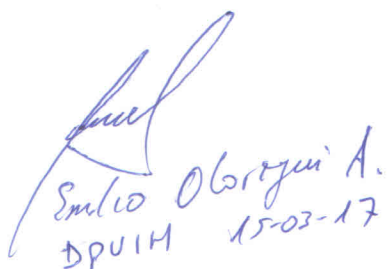 Emilio Olortegui A.
DPVIM 15-03-17